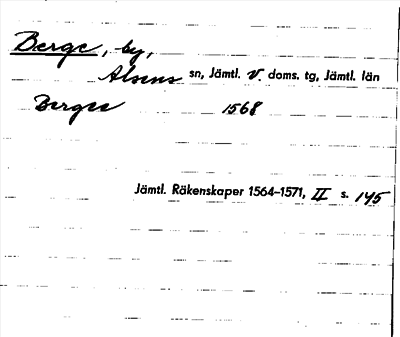 Berge, by,
Alsens sn, Jämtl. v. doms. tg, Jämtl. län
Berges 1568
Jämtl. Räkenskaper 1564–1571, II s. 145